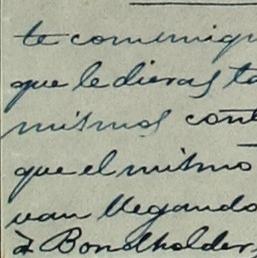 te comuniqu
que le dieras ta
mismos cont
que el mismo
van llegando
à Bondholder,